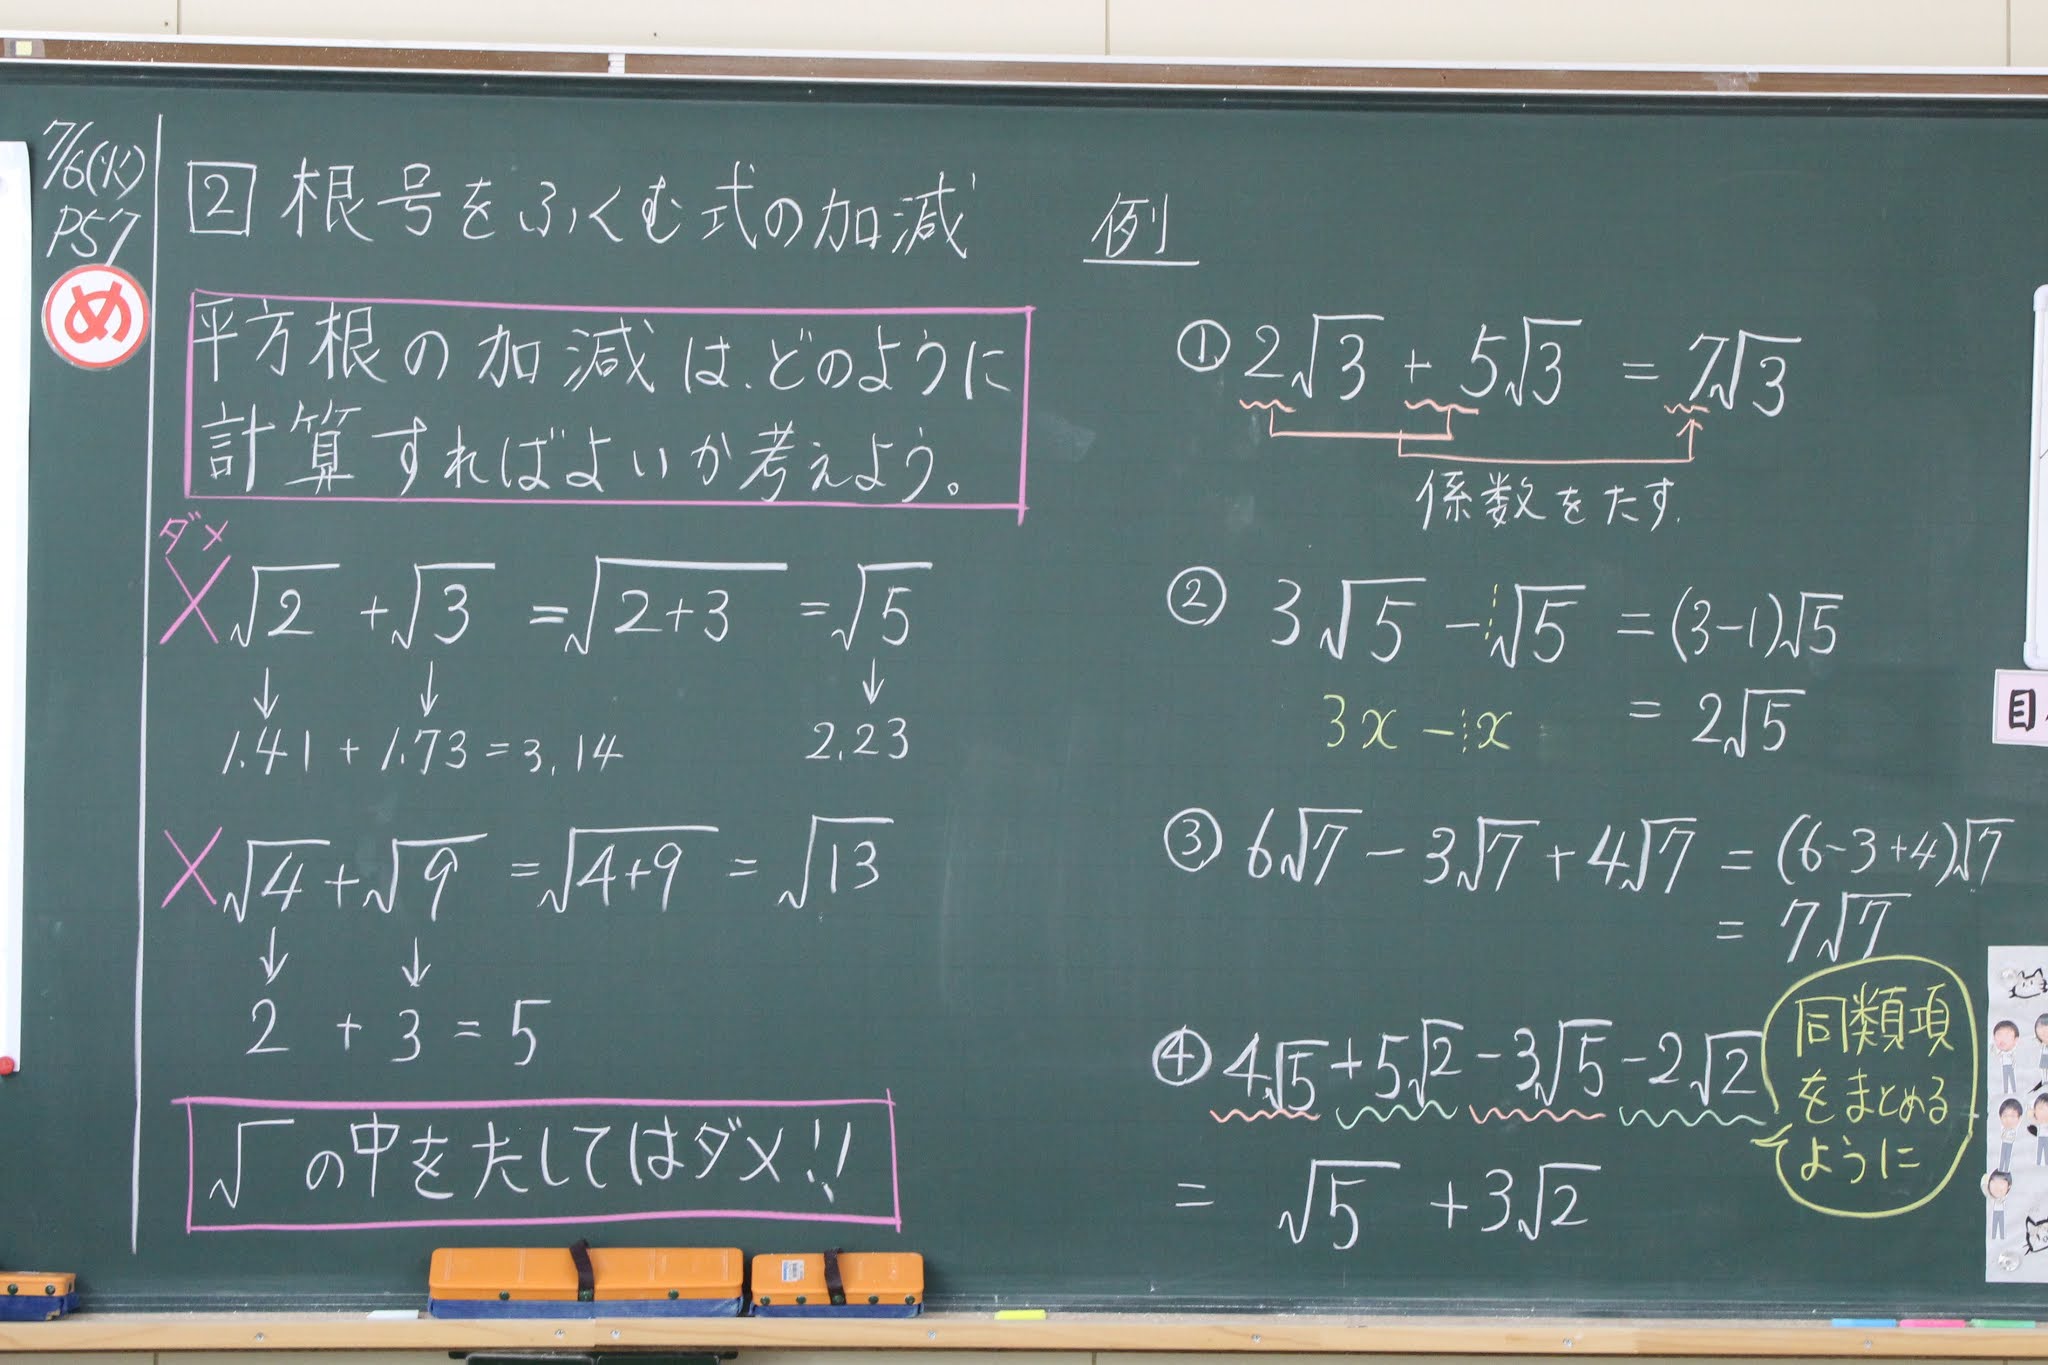 7/6(火)
P57
め
2 根号をふくむ式の加減
平方根の加減は、どのように
計算すればよいか考えよう。
ダメ
× √2 + √3 = √2+3 = √5
↓ ↓ ↓
1.41 + 1.73 = 3.14 2.23
× √4 + √9 = √4+9 = √13
↓ ↓
2 + 3 = 5
√ の中をたしてはダメ!!
例
① 2√3 + 5√3 = 7√3
係数をたす.
② 3√5 - √5 = (3-1)√5
3x - x = 2√5
③ 6√7 - 3√7 + 4√7 = (6-3+4)√7
= 7√7
④ 4√5 + 5√2 - 3√5 - 2√2
= √5 + 3√2
同類項
をまとめる
ように
目